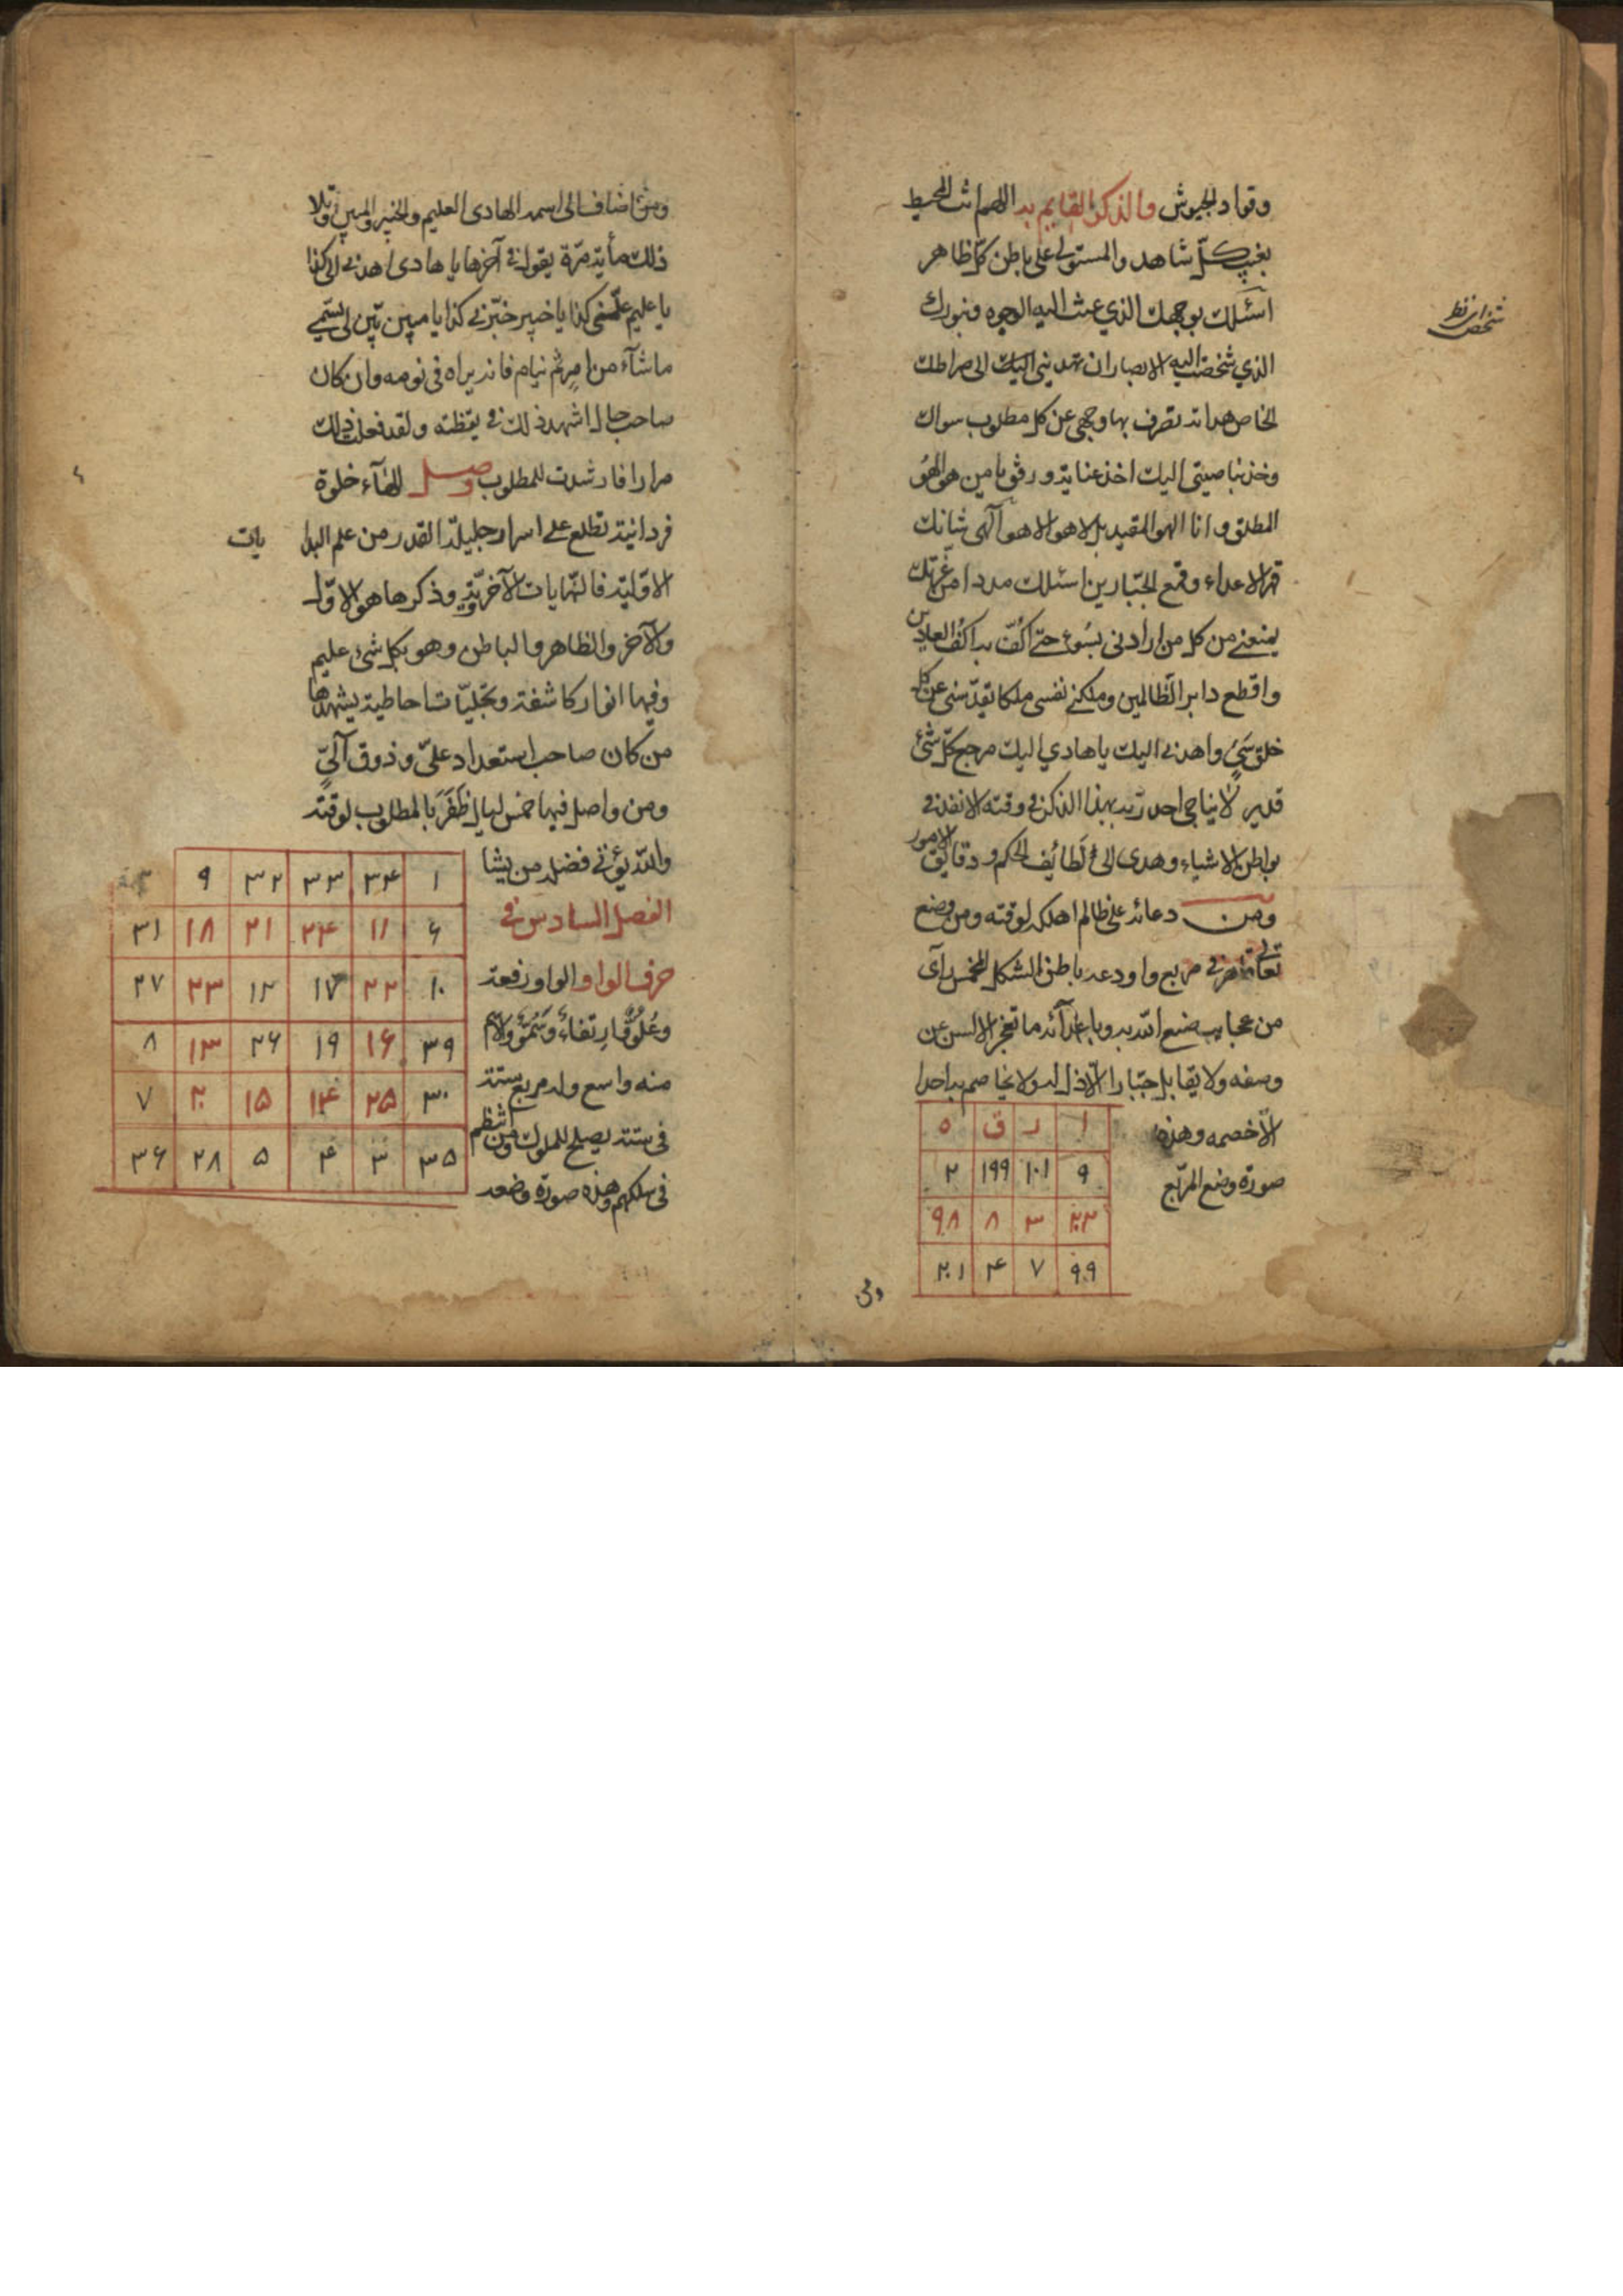 وقواد الجيوش والذكر القايم به اللهم انت المحيط
بغيب كلّ شاهد والمستولي على باطن كلّ ظاهر
اسئلك بوجهك الذي عنت اليه الوجوه وبنورك
الذي شخصت اليه الابصار ان تهديني اليك الى صراطك
الخاص هداية تصرف بها وجهى عن كل مطلوب سواك
وخذ بناصيتى اليك اخذ عناية ورفق يا من هو الهُو
المطلق وانا الهو المقيد بل لا هو الا هو آلهى شانك
قهر الاعداء وقمع الجبّارين اسئلك مددا من عزّتك
يمنعنى من كل من ارادنى بسُوء حتى اكُفّ به اكُف العادين
واقطع دابر الظّالمين وملكنى نفسى ملكا تقدّسنى عن كل
خلق سَيّئ واهدنى اليك يا هادي اليك مرجع كلّ شئ
قدير لا يناجى احد ربّه بهذا الذكر فى وقته الا نفذ فى
بواطن الاشياء وهدى الى لَطائِف الحكم ودقائق الامور
ومن دعا به على ظالم اهلكه لوقته ومن وضع
فى مربع واودعه باطن الشكل المخمس رآى
من عجايب صنع الله به وباعدآئه ما تعجز الالسن عن
وصفه ولا يقابل جبّارا الّا ذل له ولا يخاصم به احدا
الّا خصمه وهذه
صورة وضع المربّع
ا ر ق ه
٩ ١٠١ ١٩٩ ٢
٢٠٣ ٣ ٨ ٩٨
٩٩ ٧ ۴ ٢٠١
شخص
نظر
ومن اضاف الى اسمه الهادى العليم والخبير والمبين وتلا
ذلك مأية مرّة يقول فى آخرها يا هادى اهدنى الى كذا
يا عليم علّمنى كذا يا خبير خبّرنى كذا يا مبين بيّن لى يسمّى
ما شآء من امرٍ ثم ينام فانه يراه فى نومه وان كان
صاحب حال اشهد ذلك فى يقظته ولقد فعلت ذلك
مرارا فارشدت للمطلوب وصل للهآء خلوة
فردانية تطلع على اسرار جليلة القدر من علم البدا
يات
الاوّلية فالنّهايات الآخريّة وذكرها هو الاوّل
والآخر والظاهر والباطن وهو بكل شئ عليم
وفيها انوار كاشفة وتجليّات احاطية يشهدها
من كان صاحب استعداد علىّ وذوق آلىٍّ
ومن واصل فيها خمس ليال ظَفَرَ بالمطلوب لوقته
والله يؤتى فضله من يشا
الفصل السادس فى
حرف الواو والواو رفعة
وعُلوٌّ وارتفاءٌ وسُمّوٌ والاسم
منه واسع وله مربع ستة
فى ستة يصلح للملوك ومن انتظم
فى سلكهم وهذه صورة وضعه
١ ٣۴ ٣٣ ٣٢ ٩
۶ ١١ ٢۴ ٢١ ١٨ ٣١
١٠ ٢٢ ١٧ ١٢ ٢٣ ٢٧
٣٩ ١۶ ١٩ ٢۶ ١٣ ٨
٣٠ ٢۵ ١۴ ١۵ ٢٠ ٧
٣۵ ٣ ۴ ۵ ٢٨ ٣۶